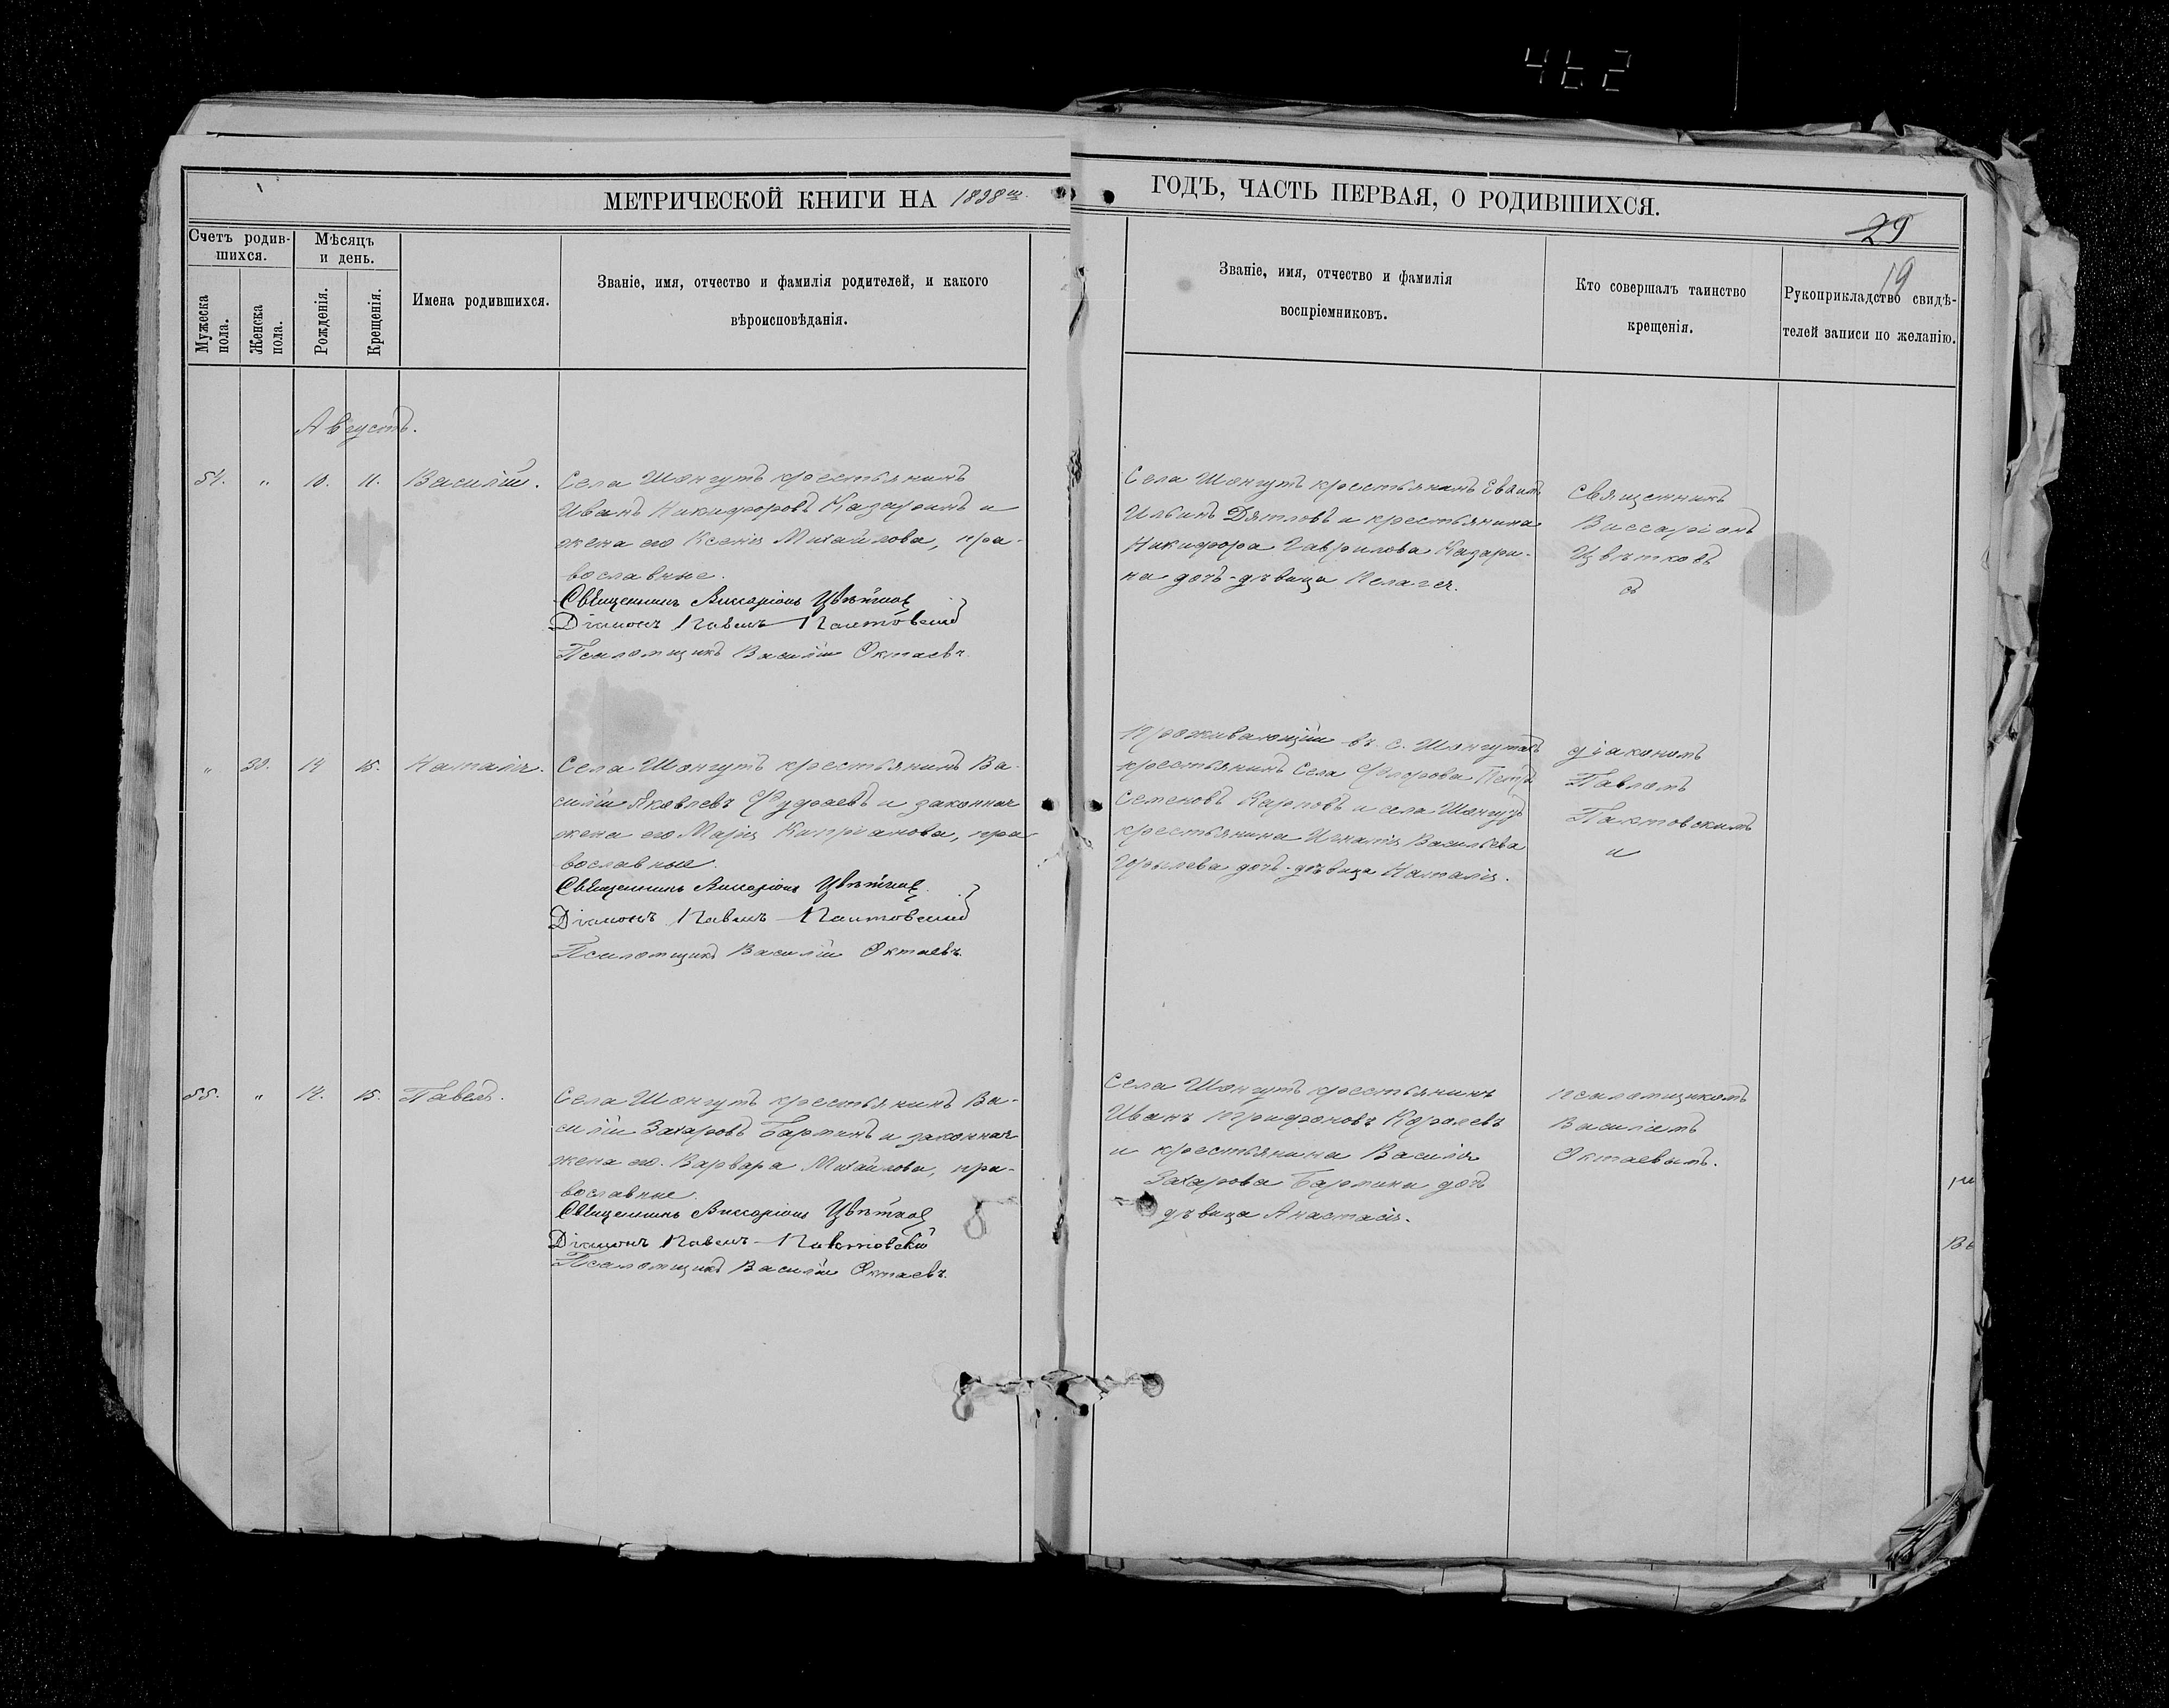 МЕТРИЧЕСКОЙ КНИГИ НА 1898 й
ГОДЪ, ЧАСТЬ ПЕРВАЯ, О РОДИВШИХСЯ.
29
19
Счетъ родив-
шихся.
Мужеска
пола.
Женска
пола.
Мѣсяцъ
и день.
Рожденія.
Крещенія.
Имена родившихся.
Званіе, имя, отчество и фамилія родителей, и какого
вѣроисповѣданія.
Званіе, имя, отчество и фамилія
воспріемниковъ.
Кто совершалъ таинство
крещенія.
Рукоприкладство свидѣ-
телей записи по желанію.
Августъ.
54. " 10. 11. Василій.
Села Шонгутъ крестьянинъ
Иванъ Никифоровъ Казаринъ и
жена его Ксенія Михайлова, пра-
вославные.
Священникъ Виссаріонъ Цвѣтков
Діаконъ Павелъ Пактовскій
Псаломщикъ Василій Октаевъ
Села Шонгутъ крестьянинъ
Ильинъ Дятловъ и крестьянина
Никифора Гаврилова Казари-
на дочь-дѣвица Пелагея.
Священникъ
Виссаріонъ
Цвѣтковъ
съ
" 30. 14 15. Наталія.
Села Шонгутъ крестьянинъ Ва-
силій Яковлевъ и законная
жена его Марія Кипріанова, пра-
вославные.
Священникъ Виссаріонъ Цвѣтков
Діаконъ Павелъ Пактовскій
Псаломщикъ Василій Октаевъ.
Проживающій въ с. Шонгутахъ
крестьянинъ села Петръ
Семеновъ Карповъ и села Шонгутъ
крестьянина Игнатія Васильева
дочь-дѣвица Наталія.
діакономъ
Павломъ
Пактовскимъ
и
55. " 14. 15. Павелъ.
Села Шонгутъ крестьянинъ Ва-
силій Захаровъ Барминъ и законная
жена его Варвара Михайлова, пра-
вославные.
Священникъ Виссаріонъ Цвѣтков
Діаконъ Павелъ Пактовскій
Псаломщикъ Василій Октаевъ.
Села Шонгутъ крестьянинъ
Иванъ Трифоновъ Королевъ
и крестьянина Василія
Захарова Бармина дочь
дѣвица Анастасія.
псаломщикомъ
Василіемъ
Октаевымъ.